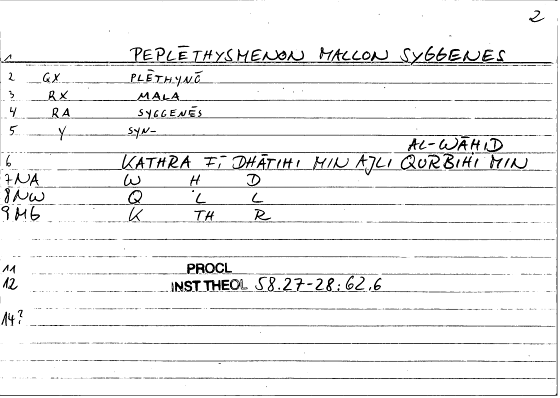 2
1 PEPLĒTHYSMENON MALLON SYGGENES
2 GX PLĒTHYNŌ
3 RX MALA
4 RA SYGGENĒS
5 Y SYN-
AL-WĀḤID
6 KATHRA FĪ DHĀTIHI MIN AJLI QURBIHI MIN
7NA W H D
8NW Q 'L L
9MG K TH R
11 PROCL
12 INST THEOL 58.27-28; 62.6
14?